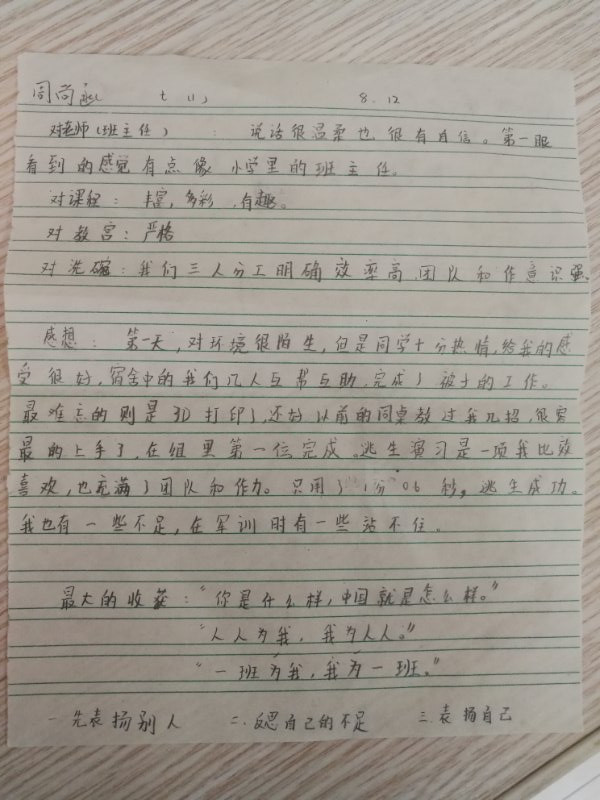 周尚 七(1) 8.12
对老师(班主任): 说话很温柔也很有自信。第一眼
看到的感觉有点像小学里的班主任。
对课程: 丰富,多彩,有趣。
对教官: 严格
对洗碗: 我们三人分工明确效率高,团队和作意识强。
感想: 第一天,对环境很陌生,但是同学十分热情,给我的感
受很好,宿舍中的我们几人互帮互助,完成了被子的工作。
最难忘的则是3D打印了,还好以前的同桌教过我几招,很
最的上手了,在组里第一位完成。逃生演习是一项我比较
喜欢,也充满了团队和作力。只用了1分06秒,逃生成功。
我也有一些不足,在军训时有一些站不住。
最大的收获:“你是什么样,中国就是怎么样。”
“人人为我,我为人人。”
“一班为我,我为一班。”
一.先表扬别人 二.反思自己的不足 三.表扬自己